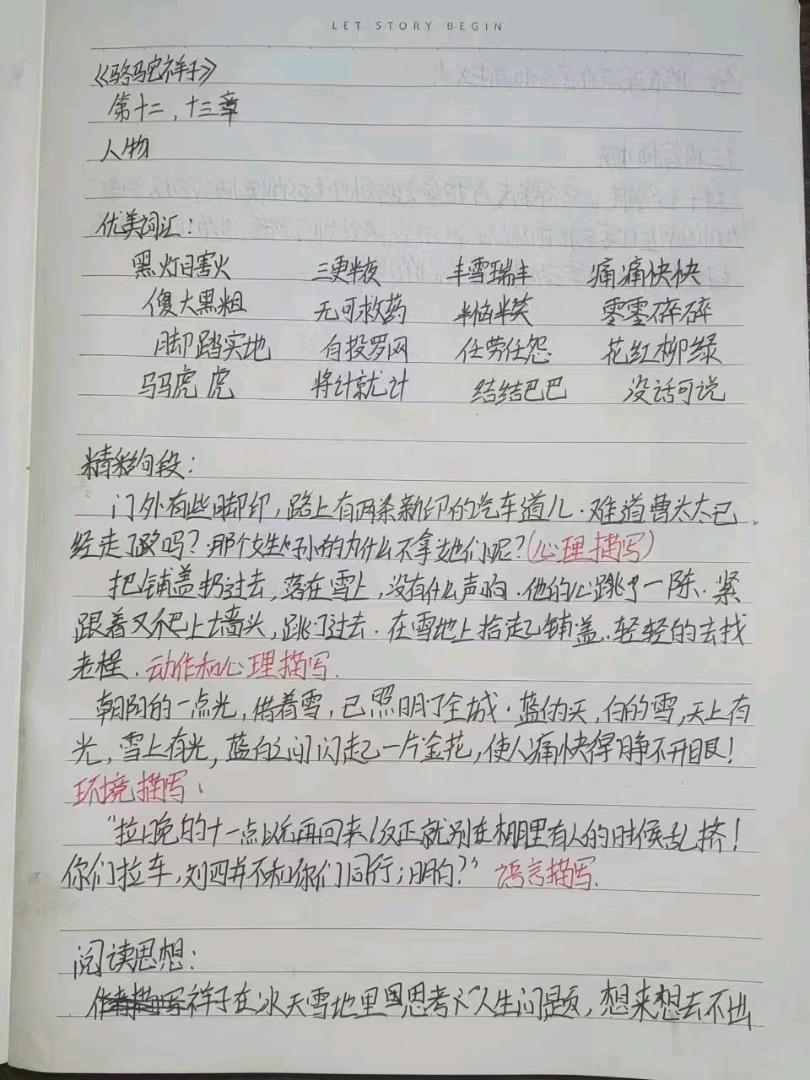 LET STORY BEGIN
《骆驼祥子》
第十二，十三章
人物
优美词汇：
黑灯瞎火 三更半夜 丰雪瑞丰 痛痛快快
傻大黑粗 无可救药 半恼半笑 零零碎碎
脚踏实地 自投罗网 任劳任怨 花红柳绿
马马虎虎 将计就计 结结巴巴 没话可说
精彩句段：
门外有些脚印，路上有两条新印的汽车道儿．难道曹太太已
经走了吗？那个姓孙的为什么不拿她们呢？（心理描写）
把铺盖扔过去，落在雪上，没有什么声响．他的心跳了一阵．紧
跟着又爬上墙头，跳了过去．在雪地上拾起铺盖．轻轻的去找
老程．动作和心理描写．
朝阳的一点光，借着雪，已照明了全城．蓝的天，白的雪，天上有
光，雪上有光，蓝白之间闪起一片金花，使人痛快得睁不开眼！
环境描写．
“拉晚的十一点以后再回来！反正就别在棚里有人的时候乱挤！
你们拉车，刘四并不和你们同行；明白？” 语言描写．
阅读思想：
祥子在冰天雪地里思考“人生问题，想来想去不出